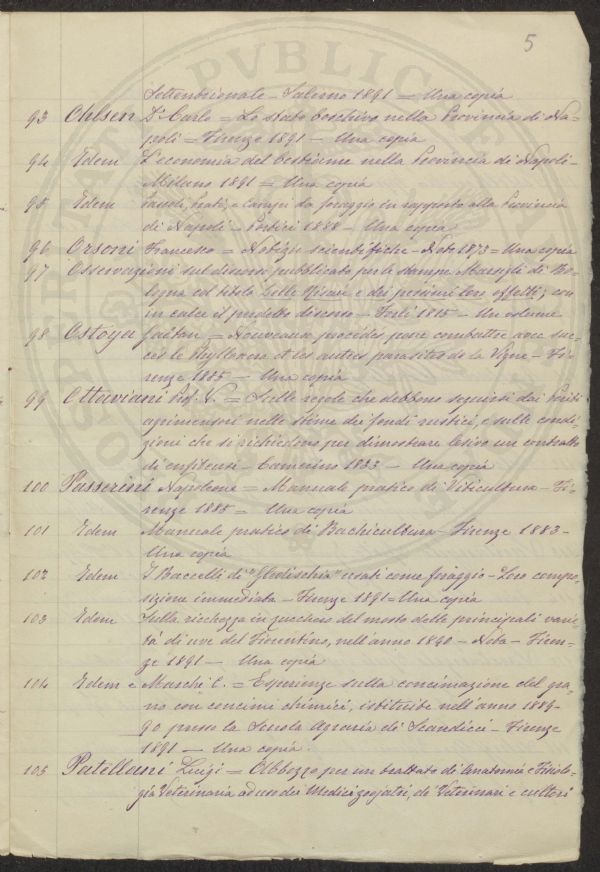 5
Settentrionale - Salerno 1891 = Una copia
93 Ohlsen Dr Carlo = Lo stato boschivo nella Provincia di Na-
poli = Firenze 1891 - Una copia
94 Idem L'economia del bestiame nella Provincia di Napoli -
Milano 1891 = Una copia
95 Idem Prati, e Campi da foraggio in rapporto alla Provincia
di Napoli - Portici 1888 - Una copia
96 Orsoni Francesco = Notizie scientifiche - Noto 1873 = Una copia
97 Osservazioni sul discorso pubblicato per le stampe Marsigli di Bo-
logna col titolo Delle Risaie e dei pessimi loro effetti; con
in calce il predetto discorso - Forlì 1815 - Un volume
98 Ostoya = Nouveaux procédés pour combattre avec suc-
cès le Phylloxera et les autres parasites de la Vigne - Fi-
renze 1885 - Una copia
99 Ottaviani Prof. V. = Sulle regole che debbono seguirsi dai Periti
agrimensori nelle stime dei fondi rustici, e sulle condi-
zioni che si richiedono per dimostrare lesivo un contratto
di enfiteusi - Camerino 1883 - Una copia
100 Passerini Napoleone = Manuale pratico di Viticultura - Fi-
renze 1885 = Una copia
101 Idem Manuale pratico di Bachicultura - Firenze 1883 -
Una copia
102 Idem I Baccelli di "Gleditschia" usati come foraggio - Loro compo-
sizione immediata - Firenze 1891 = Una copia
103 Idem Sulla ricchezza in zucchero del mosto delle principali varie-
tà di uve del Fiorentino, nell'anno 1890 - Nota - Firen-
ze 1891 - Una copia
104 Idem e Marchi E. = Esperienze sulla concimazione del gra-
no con concimi chimici, istituite nell'anno 1889-
90 presso la Scuola Agraria di Scandicci - Firenze
1891 - Una copia.
105 Patellani Luigi = Abbozzo per un trattato di Anatomia e Fisiolo-
gia Veterinaria ad uso dei Medici zoojatri, de' Veterinari e cultori